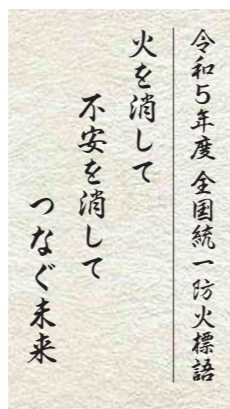 令和5年度 全国統一防火標語
火を消して
不安を消して
つなぐ未来